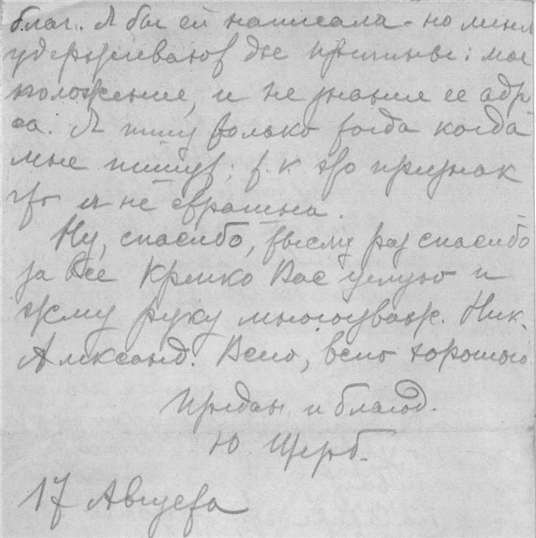 благ. Я бы ей написала - но меня
удерживают две причины: мое
положение, и не знание ее адр-
са. Я пишу только тогда когда
мне пишут; т.к это признак
что я не страшна.
Ну, спасибо, тысячу раз спасибо
за все Крепко Вас целую и
жму руку многоуваж. Ник.
Александ. Всего, всего хорошого
Предан и благод.
Ю. Щерб.
17 Августа